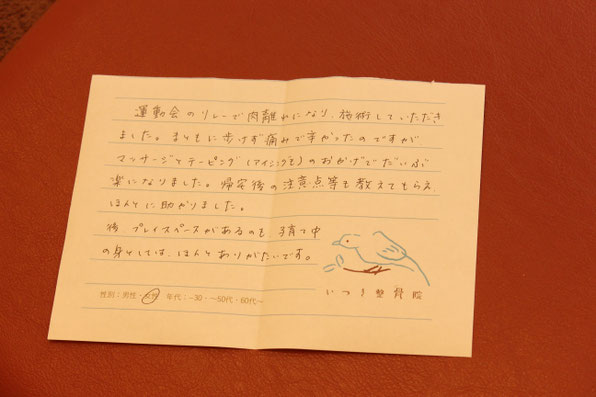 運動会のリレーで肉離れになり、施術していただき
ました。まともに歩けず痛みで辛かったのですが
マッサージとテーピング(アイシングも)のおかげでだいぶ
楽になりました。帰宅後の注意点等も教えてもらえ、
ほんとに助かりました。
後、プレイスペースがあるのも子育て中
の身としては、ほんとありがたいです。
いつき整骨院
性別:男性・女性 年代:~30・~50代・60代~